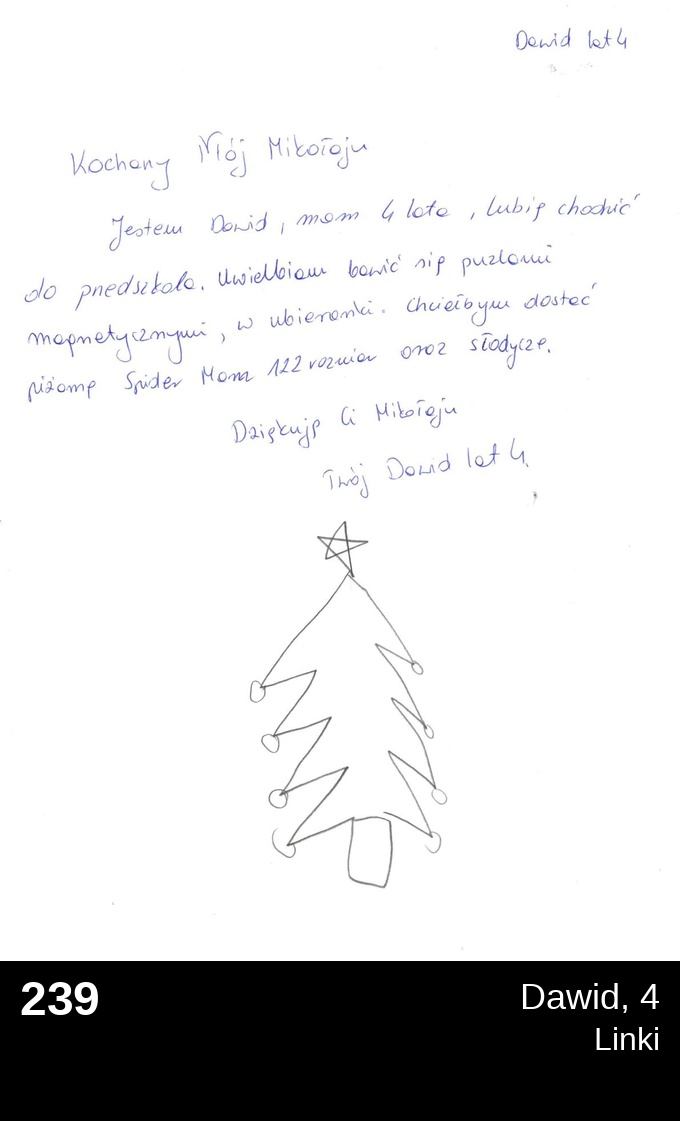 Dawid lat 4
Kochany Mój Mikołaju
Jestem Dawid, mam 4 lata, lubię chodzić
do przedszkola. Uwielbiam bawić się puzlami
magnetycznymi, w ubieranki. Chciałbym dostać
piżamę Spider Mana 122 rozmiar oraz słodycze.
Dziękuję Ci Mikołaju
Twój Dawid lat 4.
239
Dawid, 4
Linki